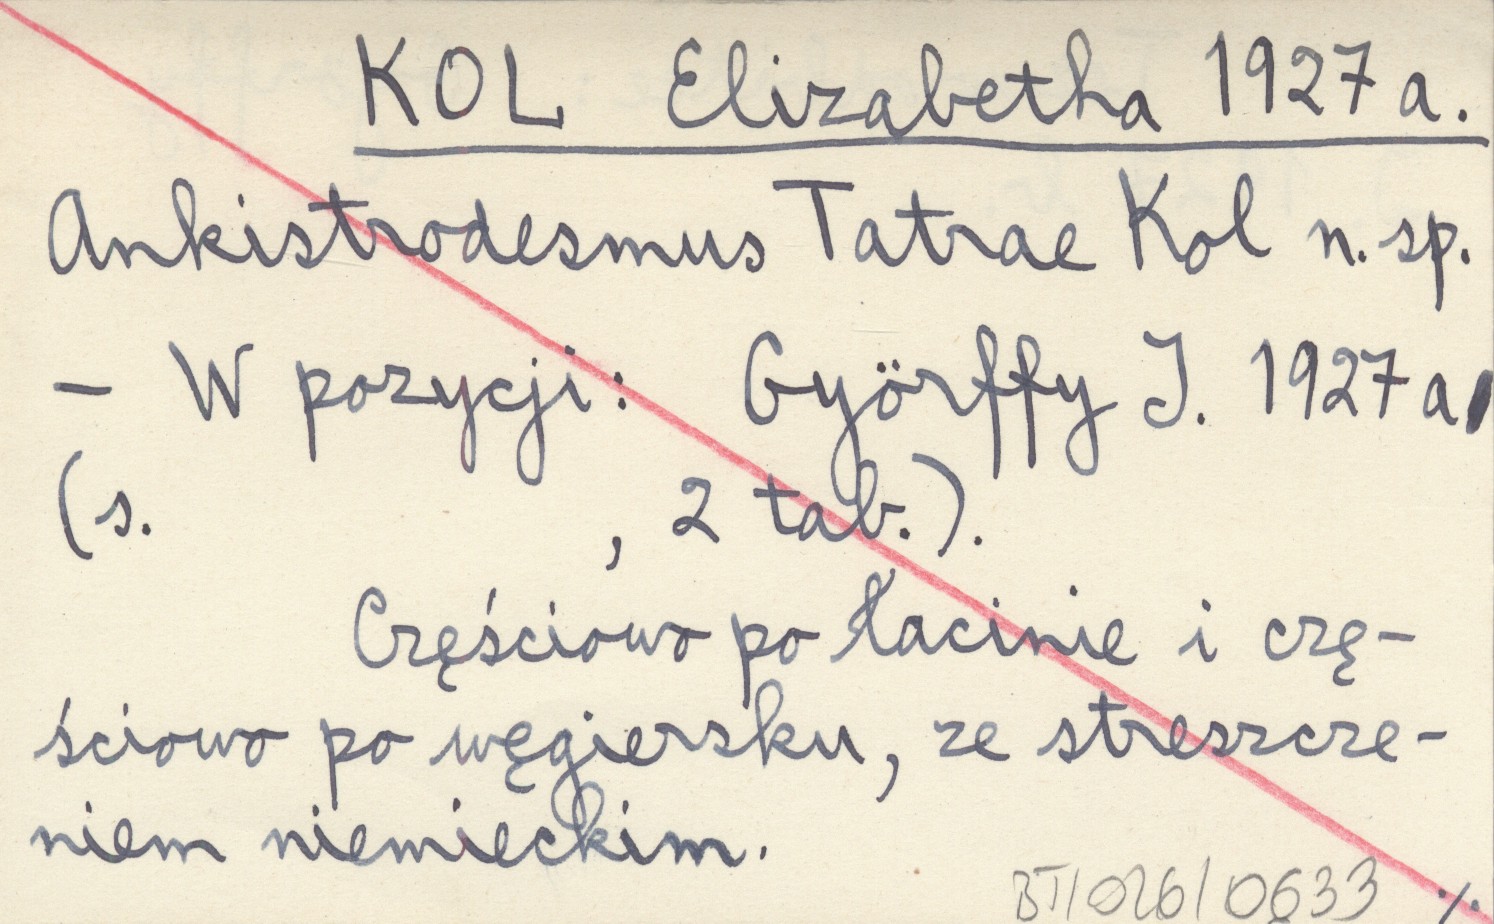 KOL Elizabetha 1927a.
Ankistrodesmus Tatrae Kol n. sp.
– W pozycji: Györffy I. 1927a
(s. , 2 tab.).
Częściowo po łacinie i czę-
ściowo po węgiersku, ze streszcze-
niem niemieckim.
BT/026/0633 ./.